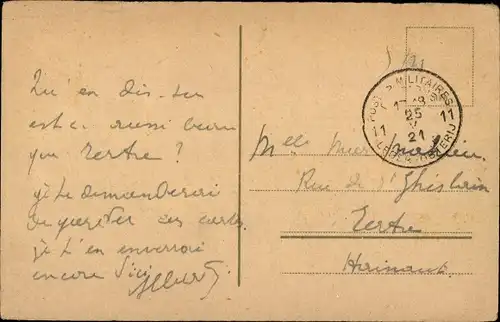 Qu'en dis-tu
est-ce aussi beau
que Tertre ?
Je te demanderai
de garder ces cartes
je t'en enverrai
encore d'ici
S.M.
POSTES MILITAIRES
17-18
25
V
21
11 11
LEGERPOSTERIJ
Melle
Rue de St Ghislain
Tertre
Hainaut